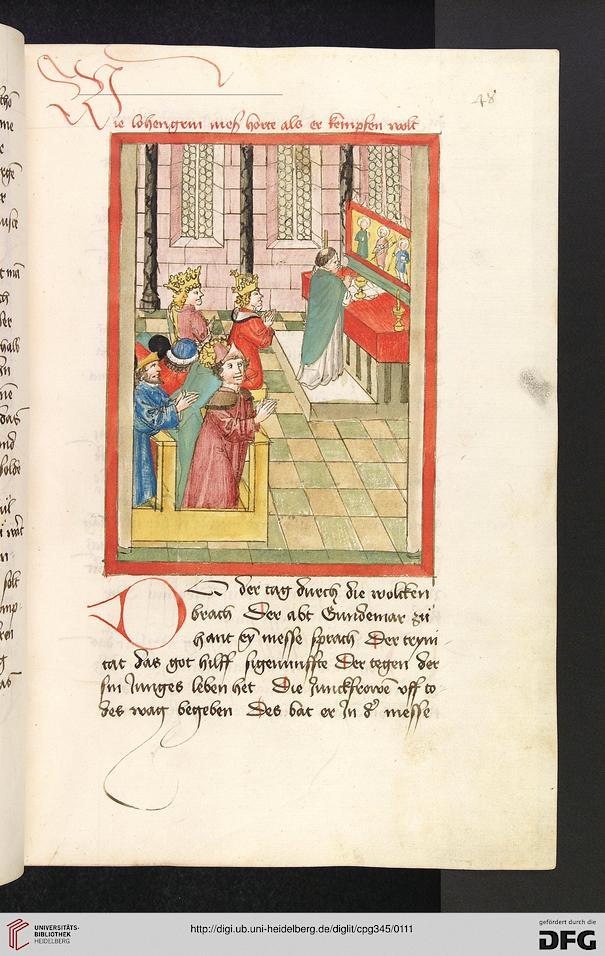 48
Wie lohengrin mess horte als er kempfen wolt
Do der tag durch die wolcken
brach Der abt Gundemar zu
hant ey messe sprach Der tryni
tat das got hilff sigenunffte Der tegen der
sin Junges leben het Die Junckfrowe vff to
des wag begeben Des bat er Jn d' messe
UNIVERSITÄTS-
BIBLIOTHEK
HEIDELBERG
http://digi.ub.uni-heidelberg.de/diglit/cpg345/0111
gefördert durch die
DFG